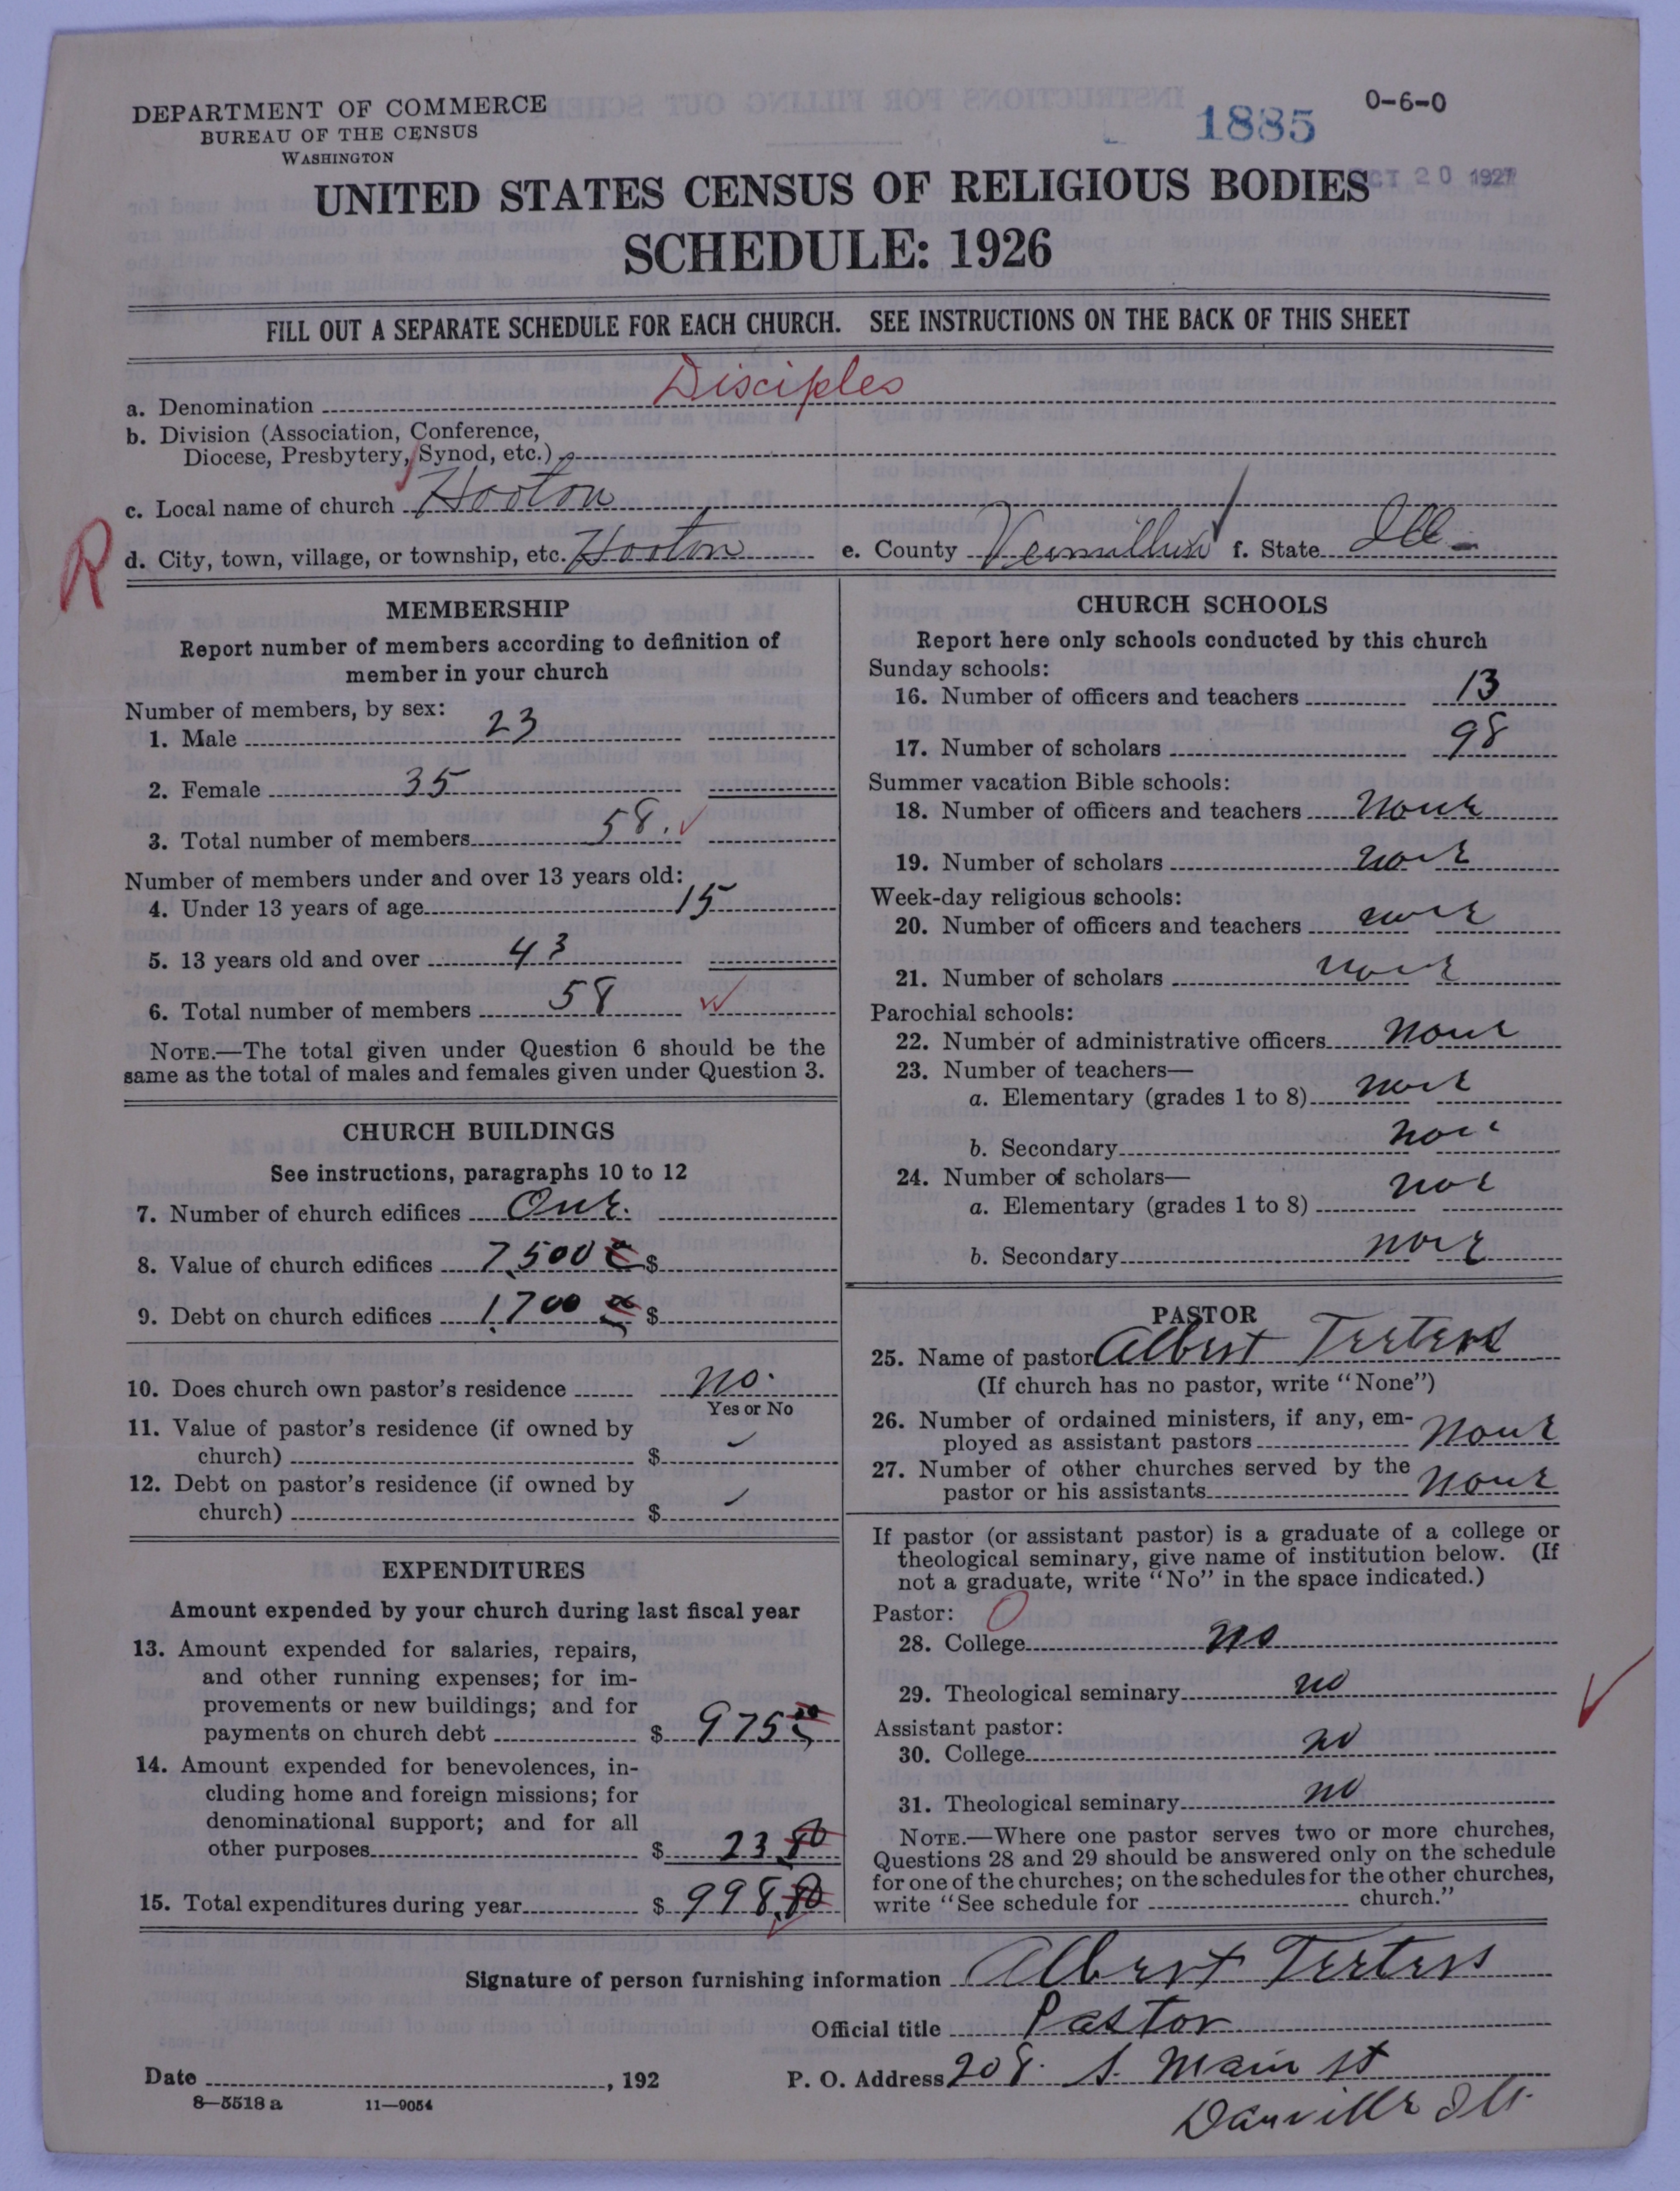 DEPARTMENT OF COMMERCE
BUREAU OF THE CENSUS
WASHINGTON
1885
0-6-0
OCT 20 1927
UNITED STATES CENSUS OF RELIGIOUS BODIES
SCHEDULE: 1926
FILL OUT A SEPARATE SCHEDULE FOR EACH CHURCH. SEE INSTRUCTIONS ON THE BACK OF THIS SHEET
a. Denomination Disciples
b. Division (Association, Conference,
Diocese, Presbytery, Synod, etc.)
c. Local name of church Hooton
d. City, town, village, or township, etc. Hooton e. County Vermillion f. State Ill
R
MEMBERSHIP
Report number of members according to definition of
member in your church
Number of members, by sex:
1. Male 23
2. Female 35
3. Total number of members 58.
Number of members under and over 13 years old:
4. Under 13 years of age 15
5. 13 years old and over 43
6. Total number of members 58
NOTE.—The total given under Question 6 should be the
same as the total of males and females given under Question 3.
CHURCH BUILDINGS
See instructions, paragraphs 10 to 12
7. Number of church edifices One.
8. Value of church edifices 7,500 $
9. Debt on church edifices 1,700 $
10. Does church own pastor's residence no.
Yes or No
11. Value of pastor's residence (if owned by
church) $
12. Debt on pastor's residence (if owned by
church) $
EXPENDITURES
Amount expended by your church during last fiscal year
13. Amount expended for salaries, repairs,
and other running expenses; for im-
provements or new buildings; and for
payments on church debt $ 975
14. Amount expended for benevolences, in-
cluding home and foreign missions; for
denominational support; and for all
other purposes $ 23.80
15. Total expenditures during year $ 998.80
CHURCH SCHOOLS
Report here only schools conducted by this church
Sunday schools:
16. Number of officers and teachers 13
17. Number of scholars 98
Summer vacation Bible schools:
18. Number of officers and teachers None
19. Number of scholars none
Week-day religious schools:
20. Number of officers and teachers none
21. Number of scholars none
Parochial schools:
22. Number of administrative officers None
23. Number of teachers—
a. Elementary (grades 1 to 8) none
b. Secondary none
24. Number of scholars—
a. Elementary (grades 1 to 8) none
b. Secondary none
PASTOR
25. Name of pastor Albert Teeters
(If church has no pastor, write "None")
26. Number of ordained ministers, if any, em-
ployed as assistant pastors None
27. Number of other churches served by the
pastor or his assistants None
If pastor (or assistant pastor) is a graduate of a college or
theological seminary, give name of institution below. (If
not a graduate, write "No" in the space indicated.)
Pastor: O
28. College no
29. Theological seminary no
Assistant pastor:
30. College no
31. Theological seminary no
NOTE.—Where one pastor serves two or more churches,
Questions 28 and 29 should be answered only on the schedule
for one of the churches; on the schedules for the other churches,
write "See schedule for church."
Signature of person furnishing information Albert Teeters
Official title Pastor
Date , 192 P. O. Address 208. S. Main st
8—5518 a 11—9054
Danville Ill.